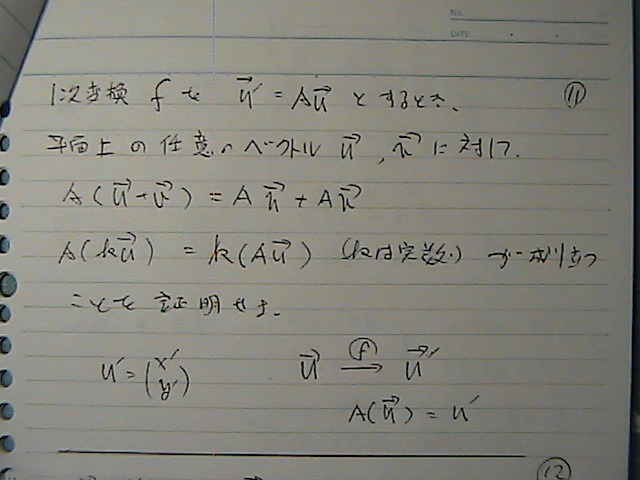 No.
DATE
1次変換 f を u⃗' = Au⃗ とするとき、 ⑪
平面上の任意のベクトル u⃗, v⃗ に対して、
A(u⃗+v⃗) = Au⃗ + Av⃗
A(ku⃗) = k(Au⃗) (kは実数) が成り立つ
ことを証明せよ。
u' = (x' y') u⃗ →(f) u⃗'
A(u⃗) = u'
⑫